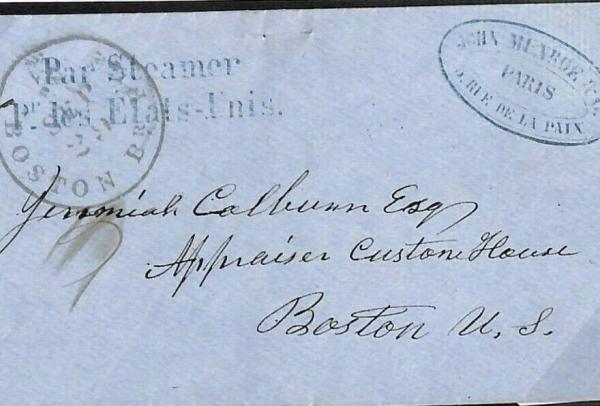 Par Steamer
Pr. les Etats-Unis.
BOSTON Br
JOHN MUNROE & Co.
PARIS
5, RUE DE LA PAIX
Jeremiah Colburn Esq
Appraiser Custom House
Boston U. S.